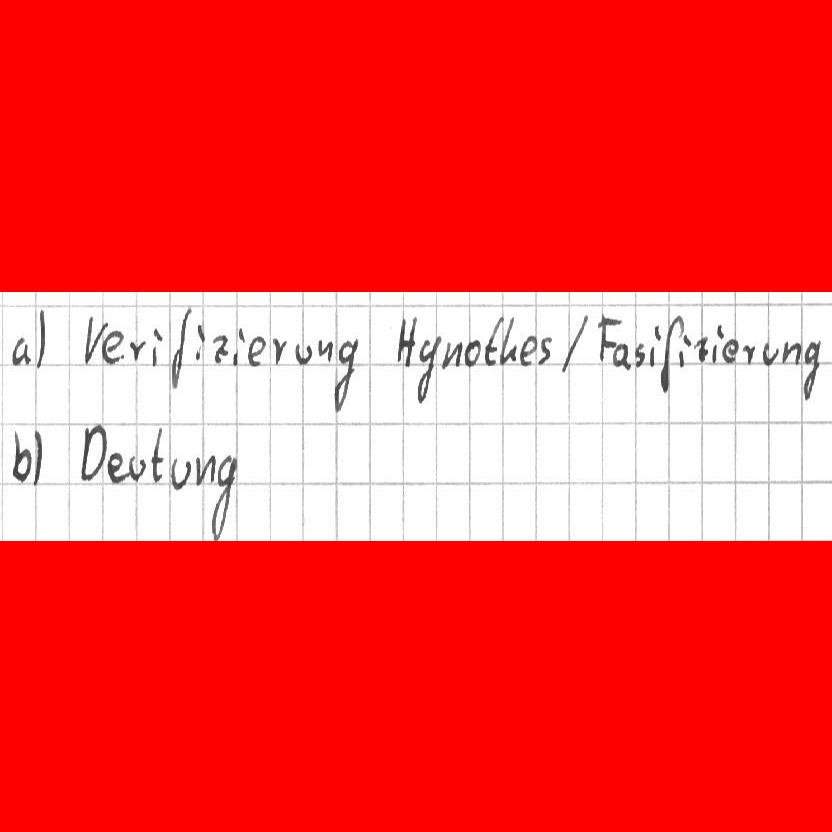 a) Verifizierung Hynothes / Fasifizierung
b) Deutung